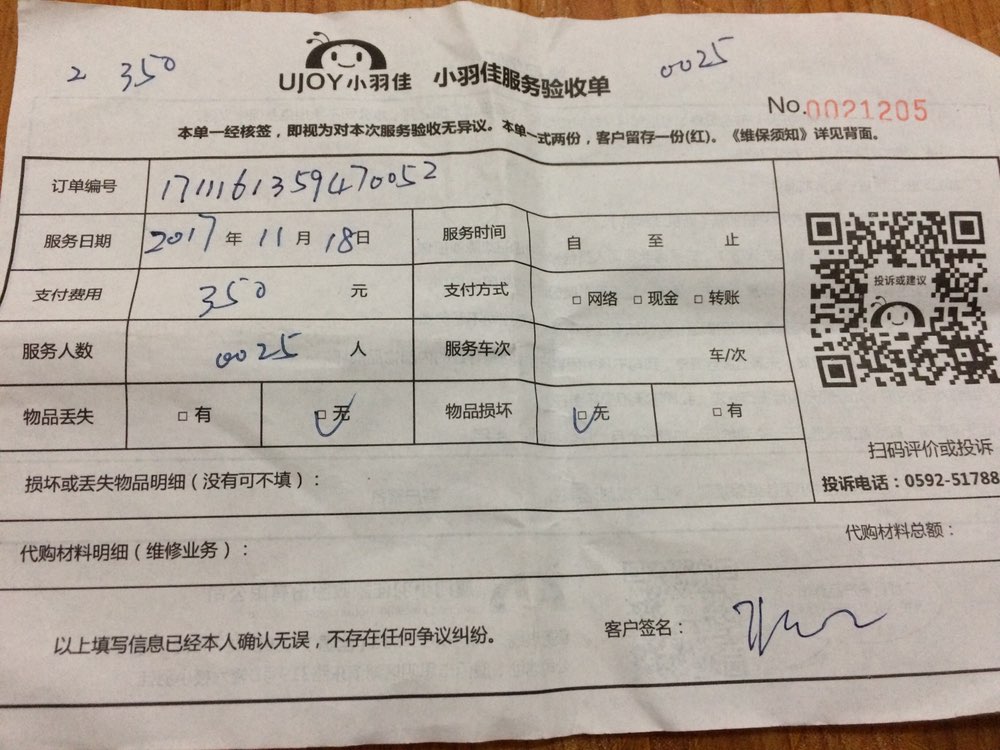 2 350
0025
UJOY小羽佳 小羽佳服务验收单
No.0021205
本单一经核签，即视为对本次服务验收无异议。本单一式两份，客户留存一份(红)。《维保须知》详见背面。
订单编号 1711161359470052
服务日期 2017 年 11 月 18 日 服务时间 自 至 止
支付费用 350 元 支付方式 □ 网络 □ 现金 □ 转账
服务人数 0025 人 服务车次 车/次
物品丢失 □ 有 □ 无 物品损坏 □ 无 □ 有
投诉或建议
扫码评价或投诉
投诉电话：0592-51788
损坏或丢失物品明细（没有可不填）：
代购材料明细（维修业务）： 代购材料总额：
以上填写信息已经本人确认无误，不存在任何争议纠纷。 客户签名：